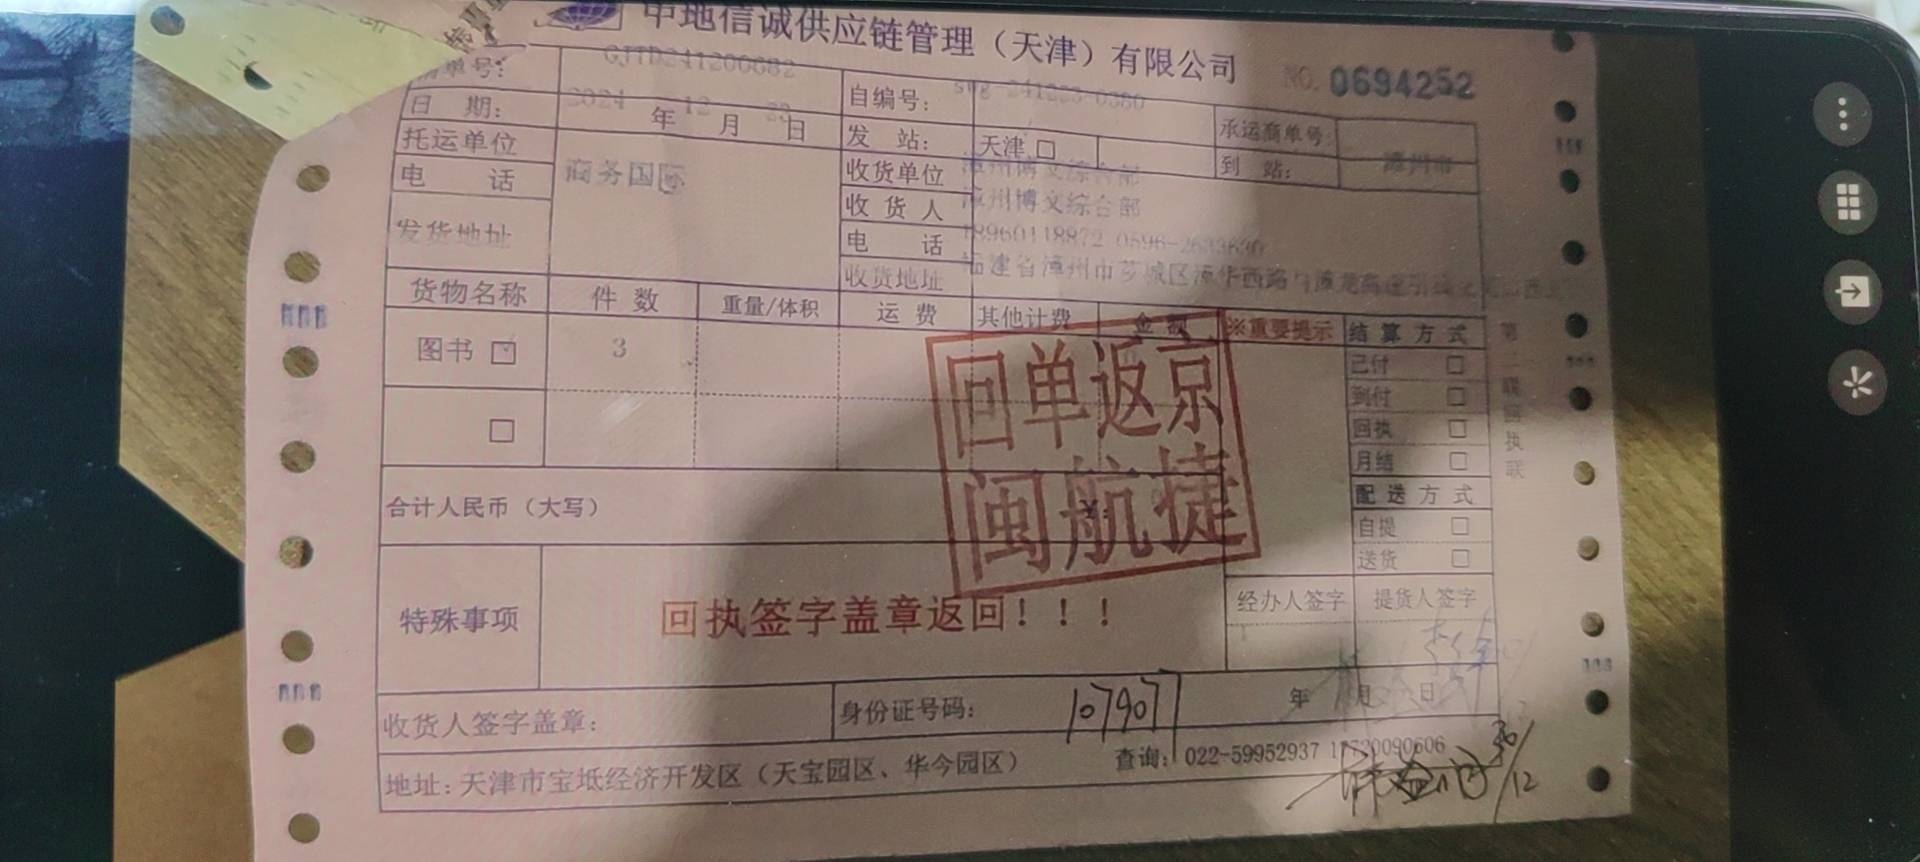 中地信诚供应链管理（天津）有限公司
NO. 0694252
清单号: GJTD241200682
自编号: swg-241223-0380
承运商单号:
日 期: 2024 年 12 月 23 日
发 站: 天津 □
到 站: 漳州市
托运单位 商务国际
收货单位 漳州博文综合部
电 话
收 货 人 漳州博文综合部
发货地址
电 话 18960118872 0596-2633630
收货地址 福建省漳州市芗城区漳华西路与漳龙高速引线
货物名称 件 数 重量/体积 运 费 其他计费 金 额 ※重要提示 结 算 方 式
图书 3
已付 □
到付 □
回执 □
月结 □
回单返京
闽航捷
合计人民币（大写） ¥:
配 送 方 式
自提 □
送货 □
特殊事项 回执签字盖章返回！！！
经办人签字 提货人签字
收货人签字盖章:
身份证号码: 1079077
年 月 日
地址: 天津市宝坻经济开发区（天宝园区、华今园区）
查询: 022-59952937 17720090606
26/12
第三联回执联